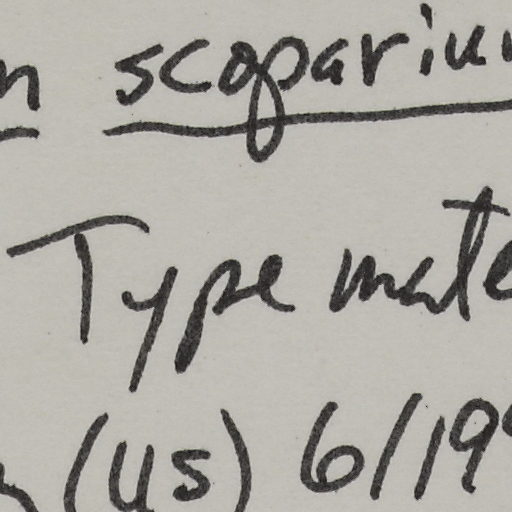 n scopariu
Type mate
(US) 6/199